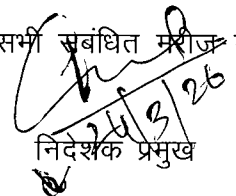 सभी संबंधित मरीज
24/3/26
निदेशक प्रमुख